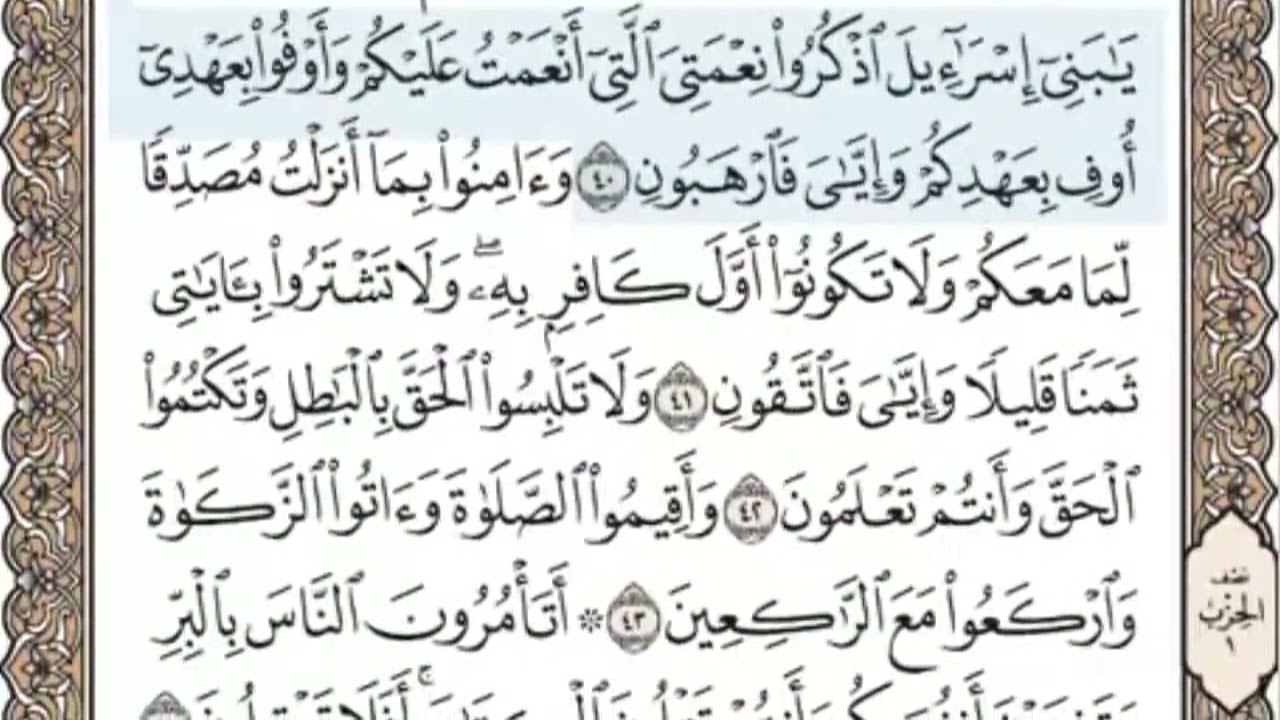 يَٰبَنِىٓ إِسۡرَٰٓءِيلَ ٱذۡكُرُواْ نِعۡمَتِىَ ٱلَّتِىٓ أَنۡعَمۡتُ عَلَيۡكُمۡ وَأَوۡفُواْ بِعَهۡدِىٓ
أُوفِ بِعَهۡدِكُمۡ وَإِيَّٰىَ فَٱرۡهَبُونِ ٤٠ وَءَامِنُواْ بِمَآ أَنزَلۡتُ مُصَدِّقٗا
لِّمَا مَعَكُمۡ وَلَا تَكُونُوٓاْ أَوَّلَ كَافِرِۭ بِهِۦۖ وَلَا تَشۡتَرُواْ بِـَٔايَٰتِى
ثَمَنٗا قَلِيلٗا وَإِيَّٰىَ فَٱتَّقُونِ ٤١ وَلَا تَلۡبِسُواْ ٱلۡحَقَّ بِٱلۡبَٰطِلِ وَتَكۡتُمُواْ
ٱلۡحَقَّ وَأَنتُمۡ تَعۡلَمُونَ ٤٢ وَأَقِيمُواْ ٱلصَّلَوٰةَ وَءَاتُواْ ٱلزَّكَوٰةَ
وَٱرۡكَعُواْ مَعَ ٱلرَّٰكِعِينَ ٤٣ ۞ أَتَأۡمُرُونَ ٱلنَّاسَ بِٱلۡبِرِّ
نصف
الحزب
١